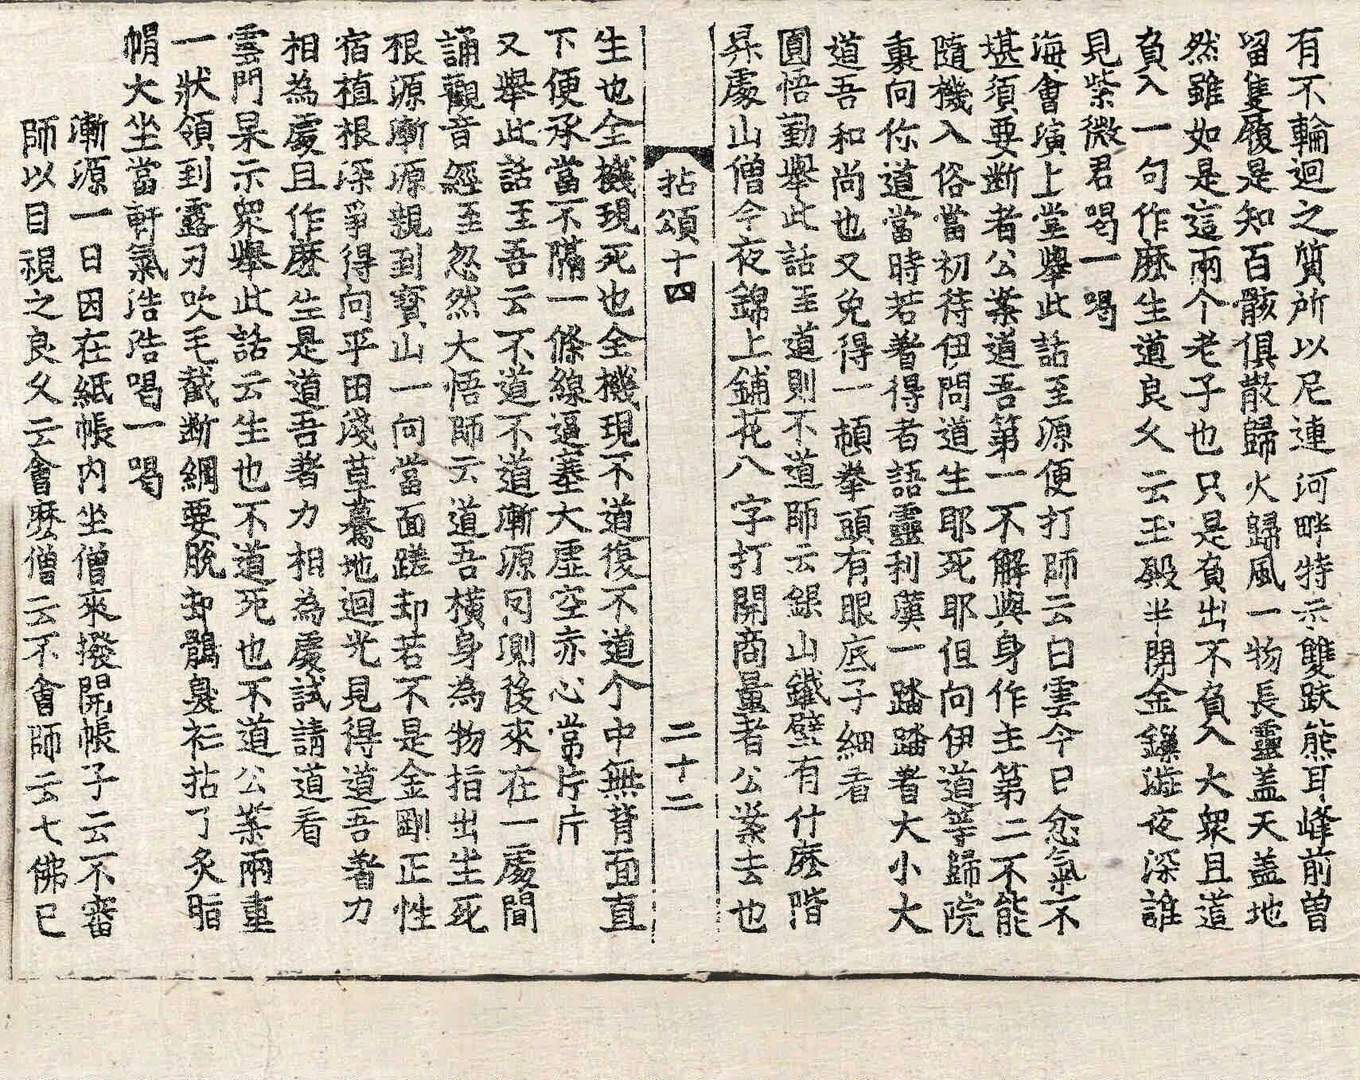 有不輪迴之質所以尼連河畔特示雙趺熊耳峰前曾
留隻履是知百骸俱散歸火歸風一物長靈盖天盖地
然雖如是這兩个老子也只是負出不負入大衆且道
負入一句作麽生道良久云玉殿半開金鏁澁夜深誰
見紫微君喝一喝
海會演上堂舉此話至源便打師云白雲今日忿氣不
堪須要断者公案道吾第一不解與身作主第二不能
隨機入俗當初待伊問道生耶死耶但向伊道等歸院
裏向你道當時若著得者語靈利漢一踏踏著大小大
道吾和尚也又免得一頓拳頭有眼底子細看
圓悟勤舉此話至道則不道師云銀山鐵壁有什麽階
昇處山僧今夜錦上鋪花八字打開商量者公案去也
拈頌十四 二十二
生也全機現死也全機現不道復不道个中無背面直
下便承當不隔一條線逼塞大虛空赤心常片片
又舉此話至吾云不道不道漸源同測後來在一處間
誦觀音經至忽然大悟師云道吾橫身為物指出生死
根源漸源親到寳山一向當面蹉却若不是金剛正性
宿植根深爭得向平田淺草驀地迴光見得道吾著力
相為處且作麽生是道吾著力相為處試請道看
雲門杲示衆舉此話云生也不道死也不道公案兩重
一狀領到露刃吹毛截断綱要脫却鶻臭衫拈了炙脂
帽大坐當軒氣浩浩喝一喝
漸源一日因在紙帳內坐僧來撥開帳子云不審
師以目視之良久云會麽僧云不會師云七佛已